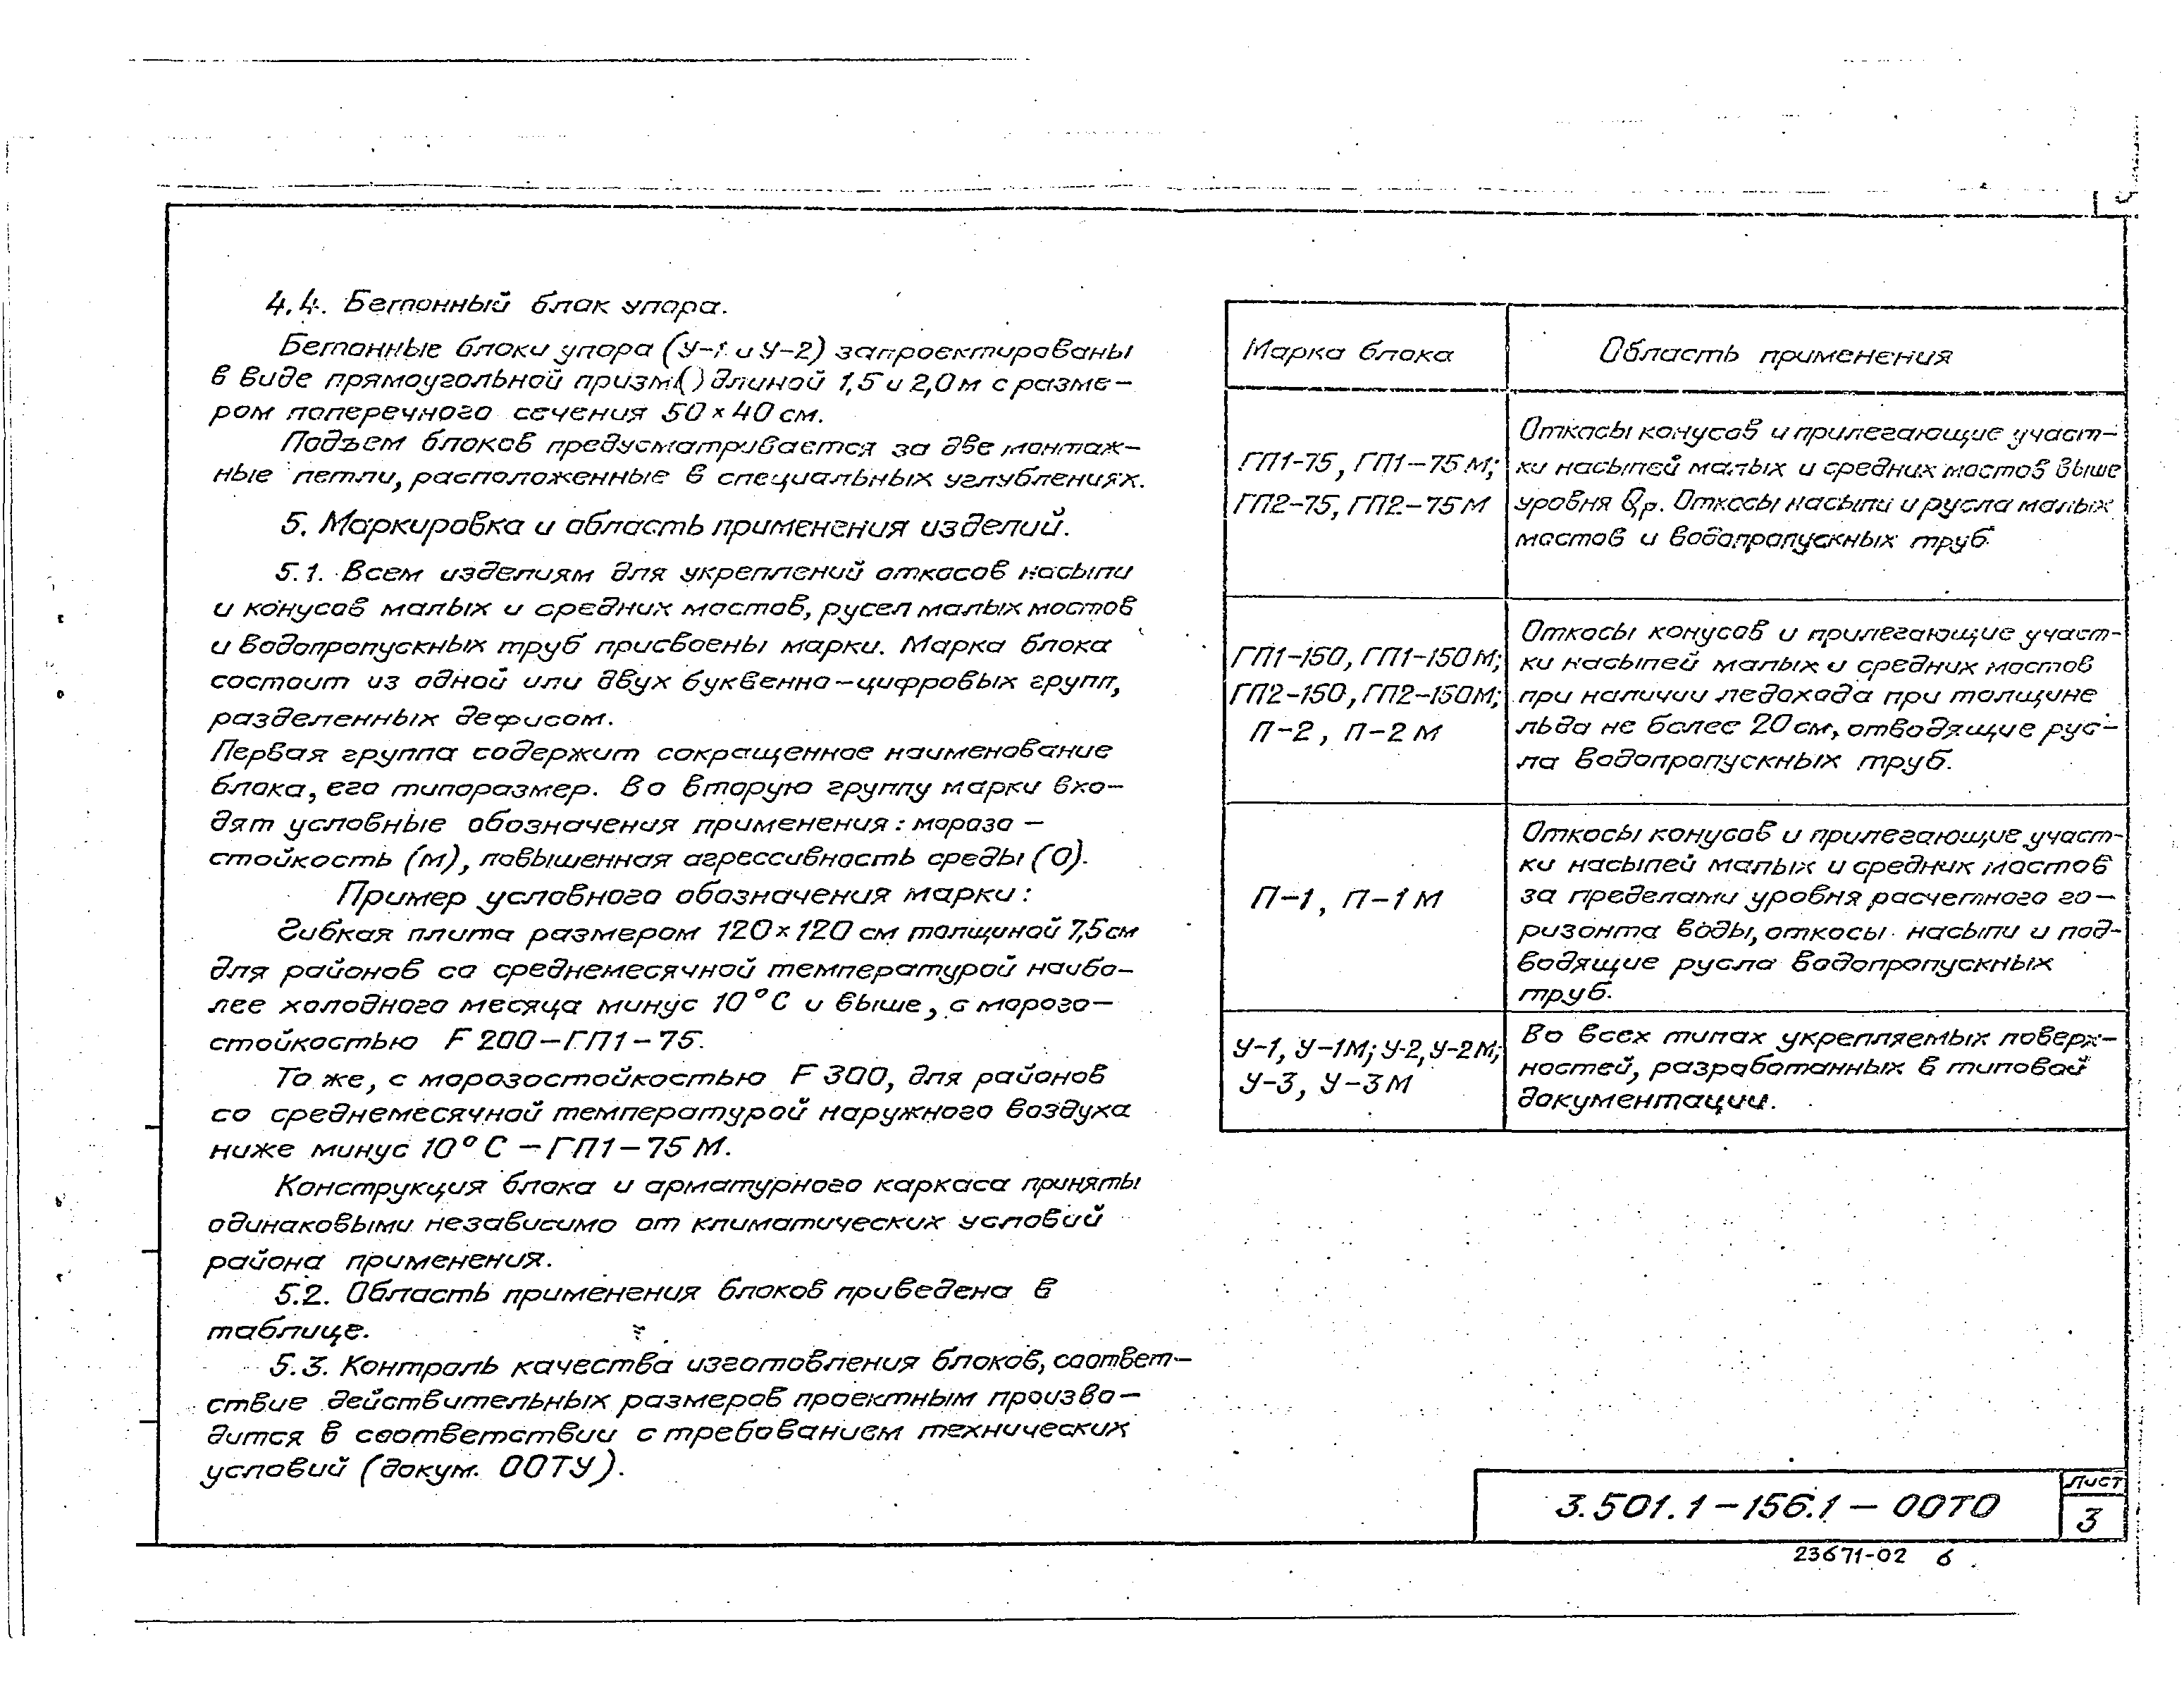 4.4. Бетонный блок упора.
Бетонные блоки упора (У-1 и У-2) запроектированы
в виде прямоугольной призм() длиной 1,5 и 2,0 м с разме-
ром поперечного сечения 50 × 40 см.
Подъем блоков предусматривается за две монтаж-
ные петли, расположенные в специальных углублениях.
5. Маркировка и область применения изделий.
5.1. Всем изделиям для укреплений откосов насыпи
и конусов малых и средних мостов, русел малых мостов
и водопропускных труб присвоены марки. Марка блока
состоит из одной или двух буквенно-цифровых групп,
разделенных дефисом.
Первая группа содержит сокращенное наименование
блока, его типоразмер. Во вторую группу марки вхо-
дят условные обозначения применения: морозо-
стойкость (м), повышенная агрессивность среды (О).
Пример условного обозначения марки:
Гибкая плита размером 120 × 120 см толщиной 7,5 см
для районов со среднемесячной температурой наибо-
лее холодного месяца минус 10°С и выше, с морозо-
стойкостью F 200 – ГП1 – 75.
То же, с морозостойкостью F 300, для районов
со среднемесячной температурой наружного воздуха
ниже минус 10°С – ГП1 – 75 М.
Конструкция блока и арматурного каркаса приняты
одинаковыми независимо от климатических условий
района применения.
5.2. Область применения блоков приведена в
таблице.
5.3. Контроль качества изготовления блоков, соответ-
ствие действительных размеров проектным произво-
дится в соответствии с требованием технических
условий (докум. 00ТУ).
Марка блока
Область применения
ГП1-75, ГП1-75М;
ГП2-75, ГП2-75М
Откосы конусов и прилегающие участ-
ки насыпей малых и средних мостов выше
уровня Qр. Откосы насыпи и русла малых
мостов и водопропускных труб
ГП1-150, ГП1-150М;
ГП2-150, ГП2-150М;
П-2, П-2М
Откосы конусов и прилегающие участ-
ки насыпей малых и средних мостов
при наличии ледохода при толщине
льда не более 20 см, отводящие рус-
ла водопропускных труб.
П-1, П-1М
Откосы конусов и прилегающие участ-
ки насыпей малых и средних мостов
за пределами уровня расчетного го-
ризонта воды, откосы насыпи и под-
водящие русла водопропускных
труб.
У-1, У-1М; У-2, У-2М;
У-3, У-3М
Во всех типах укрепляемых поверх-
ностей, разработанных в типовой
документации.
3.501.1-156.1-00ТО
Лист
3
23671-02 6